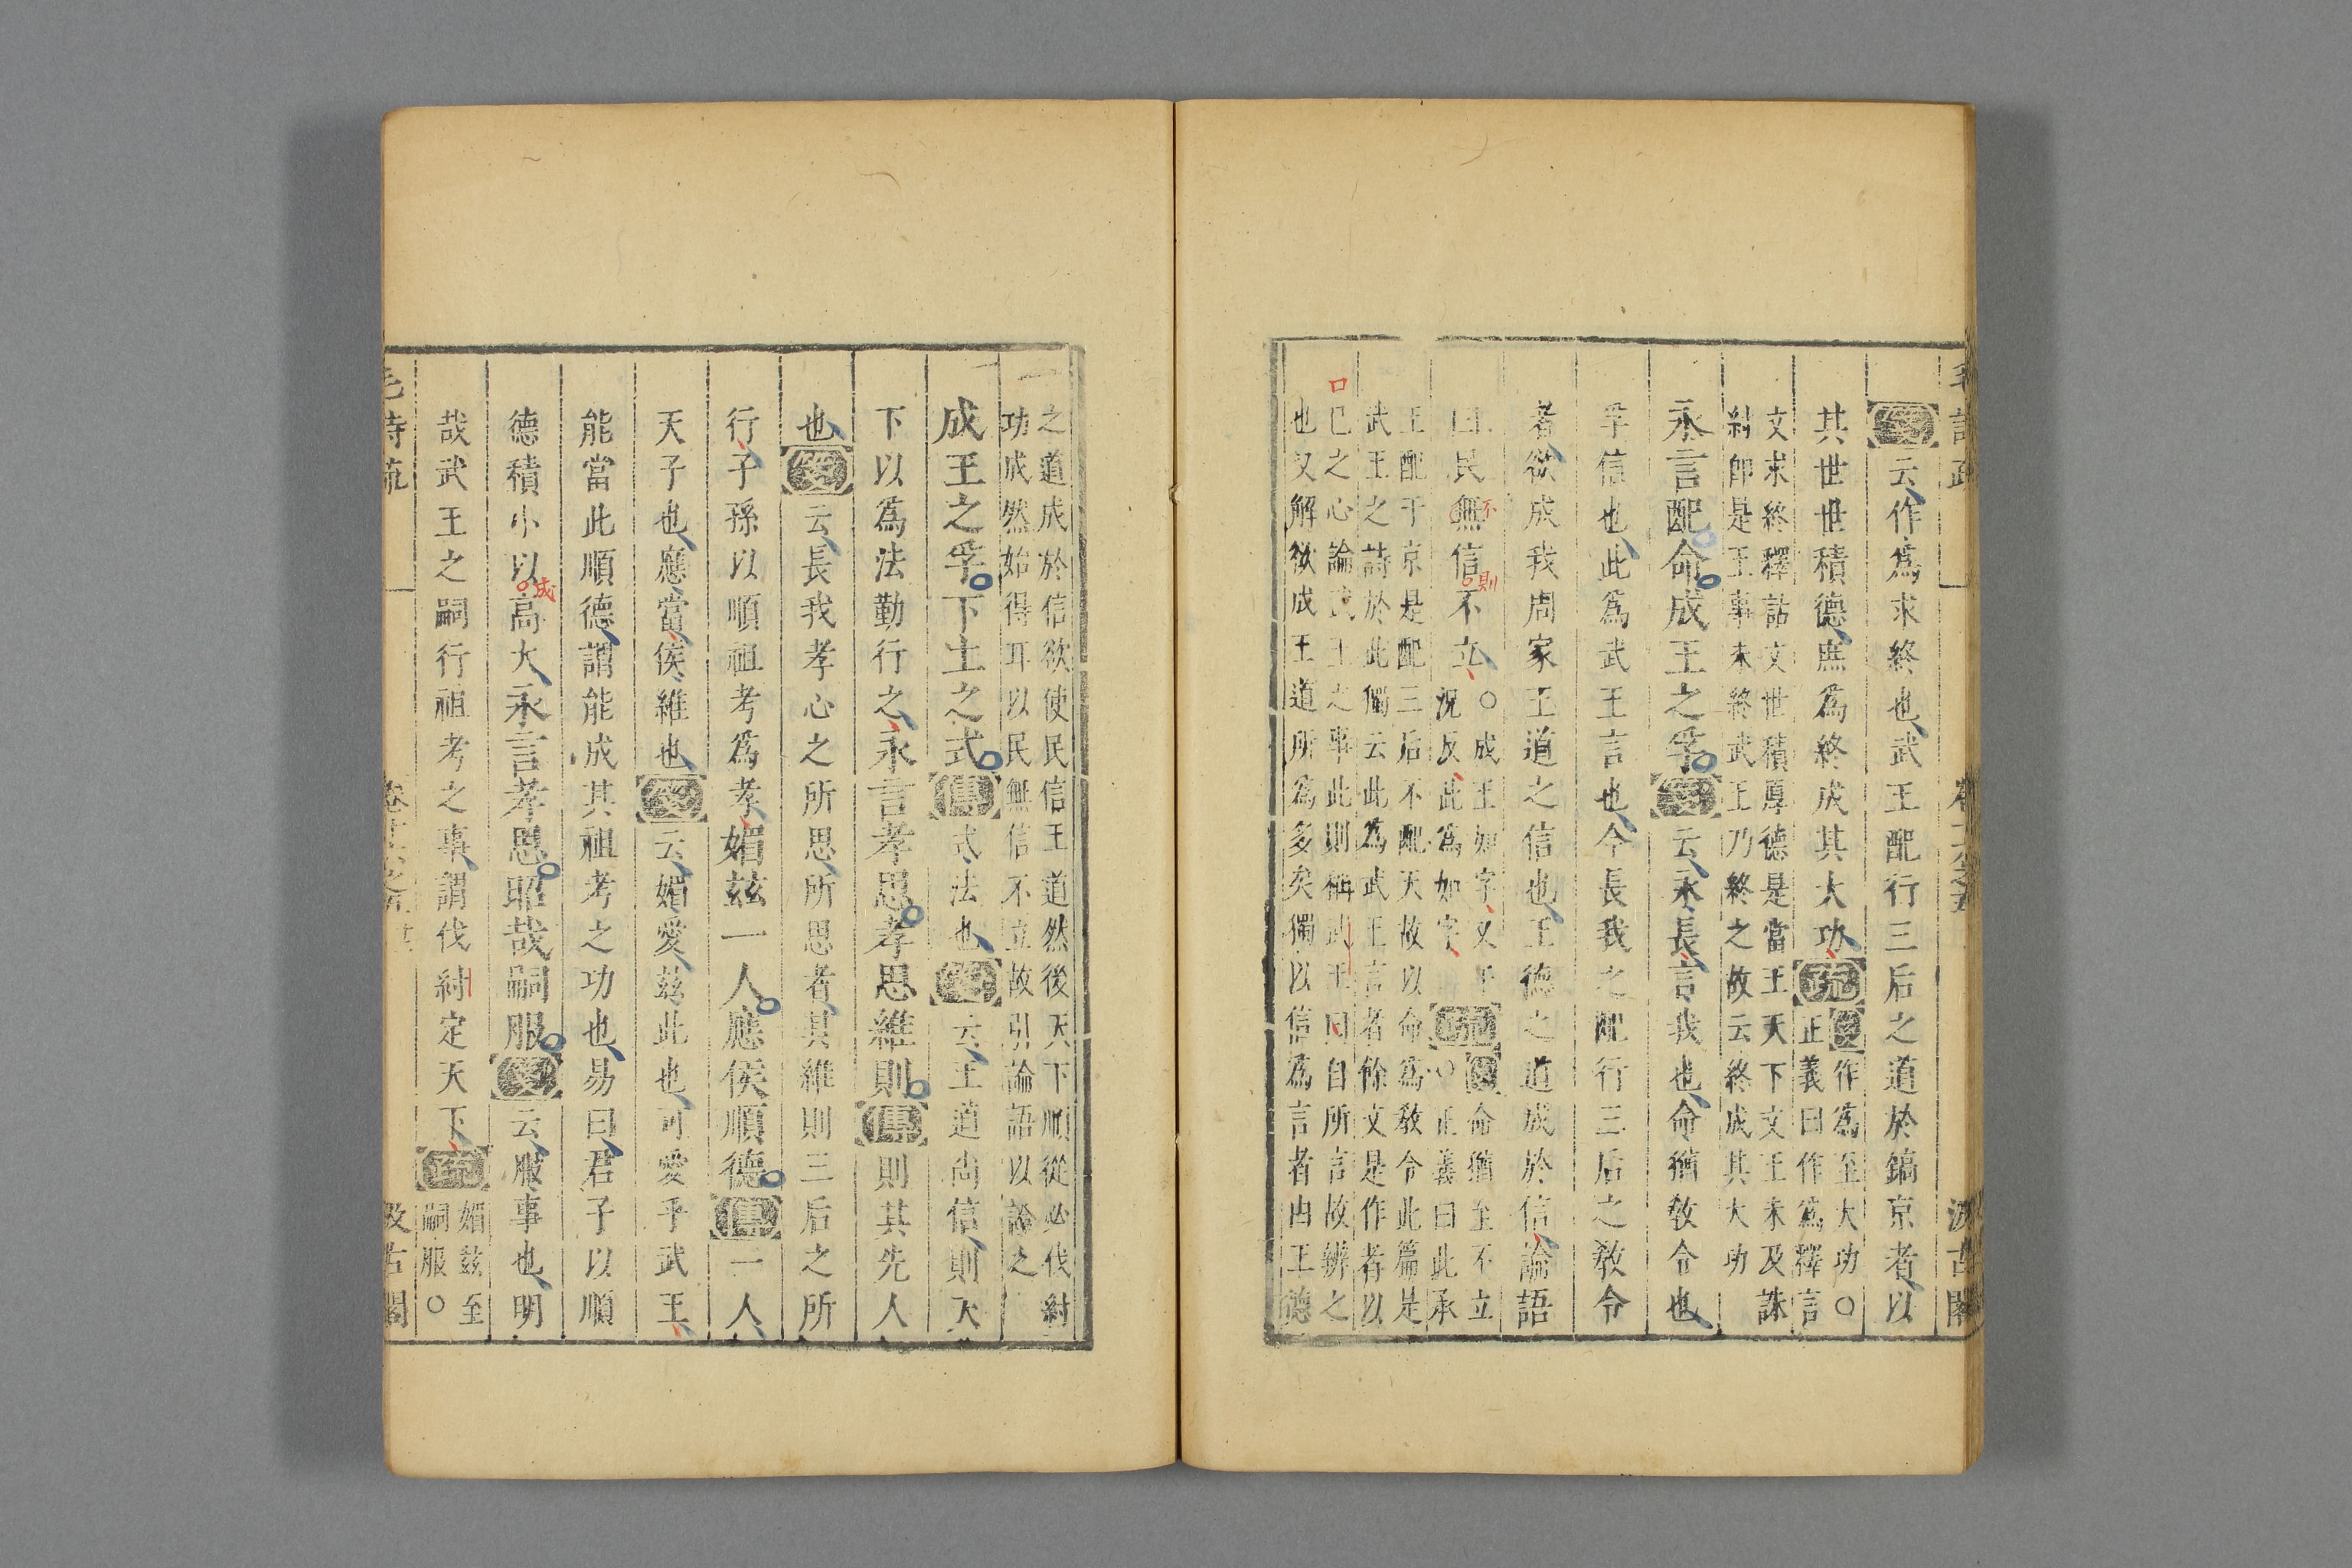 箋云作爲求終也武王配行三后之道於鎬京者以
其世世積德庶爲終成其大功疏箋作爲至大功○
正義曰作爲釋言
文求終釋詁文世積厚德是當王天下文王未及誅
紂卽是王事未終武王乃終之故云終成其大功
永言配命成王之孚箋云永長言我也命猶敎令也
孚信也此爲武王言也今長我之配行三后之敎令
者欲成我周家王道之信也王德之道成於信論語
曰民無信不立○成王如字又于
況反此爲如字疏箋命猶至不立
○正義曰此承
王配于京是配三后不配天故以命爲敎令此篇是
武王之詩於此獨云此爲武王言者餘文是作者以
已之心論武王之事此則稱武王口自所言故辨之
也又解欲成王道所爲多矣獨以信爲言者由王德
毛詩疏 卷十六之五 汲古閣
之道成於信欲使民信王道然後天下順從必伐紂
功成然始得耳以民無信不立故引論語以證之
成王之孚下土之式傳式法也箋云王道尚信則天
下以爲法勤行之永言孝思孝思維則傳則其先人
也箋云長我孝心之所思所思者其維則三后之所
行子孫以順祖考爲孝媚茲一人應侯順德傳一人
天子也應當侯維也箋云媚愛茲此也可愛乎武王
能當此順德謂能成其祖考之功也易曰君子以順
德積小以高大永言孝思昭哉嗣服箋云服事也明
哉武王之嗣行祖考之事謂伐紂定天下疏媚茲至
嗣服○
毛詩疏 卷十六之五 汲古閣
口
不
則
成